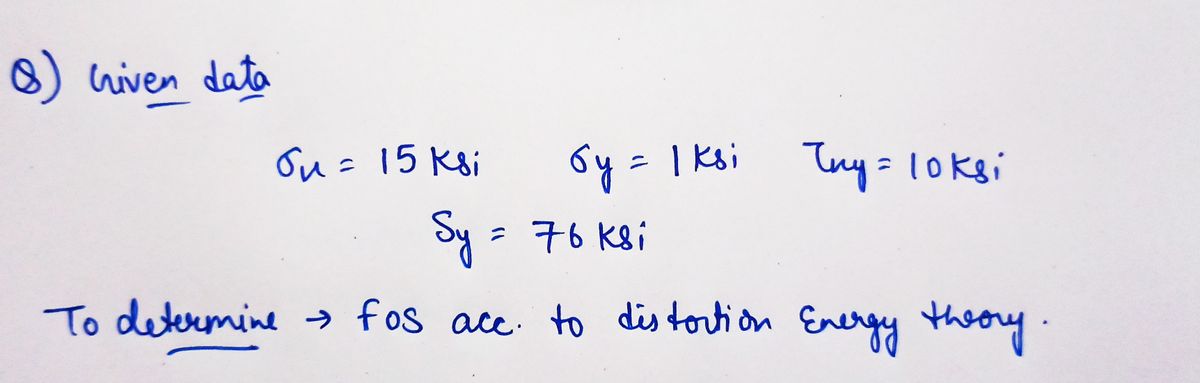 Q) Given data
σx = 15 Ksi σy = 1 Ksi τxy = 10 Ksi
Sy = 76 Ksi
To determine → fos acc. to distortion Energy theory.